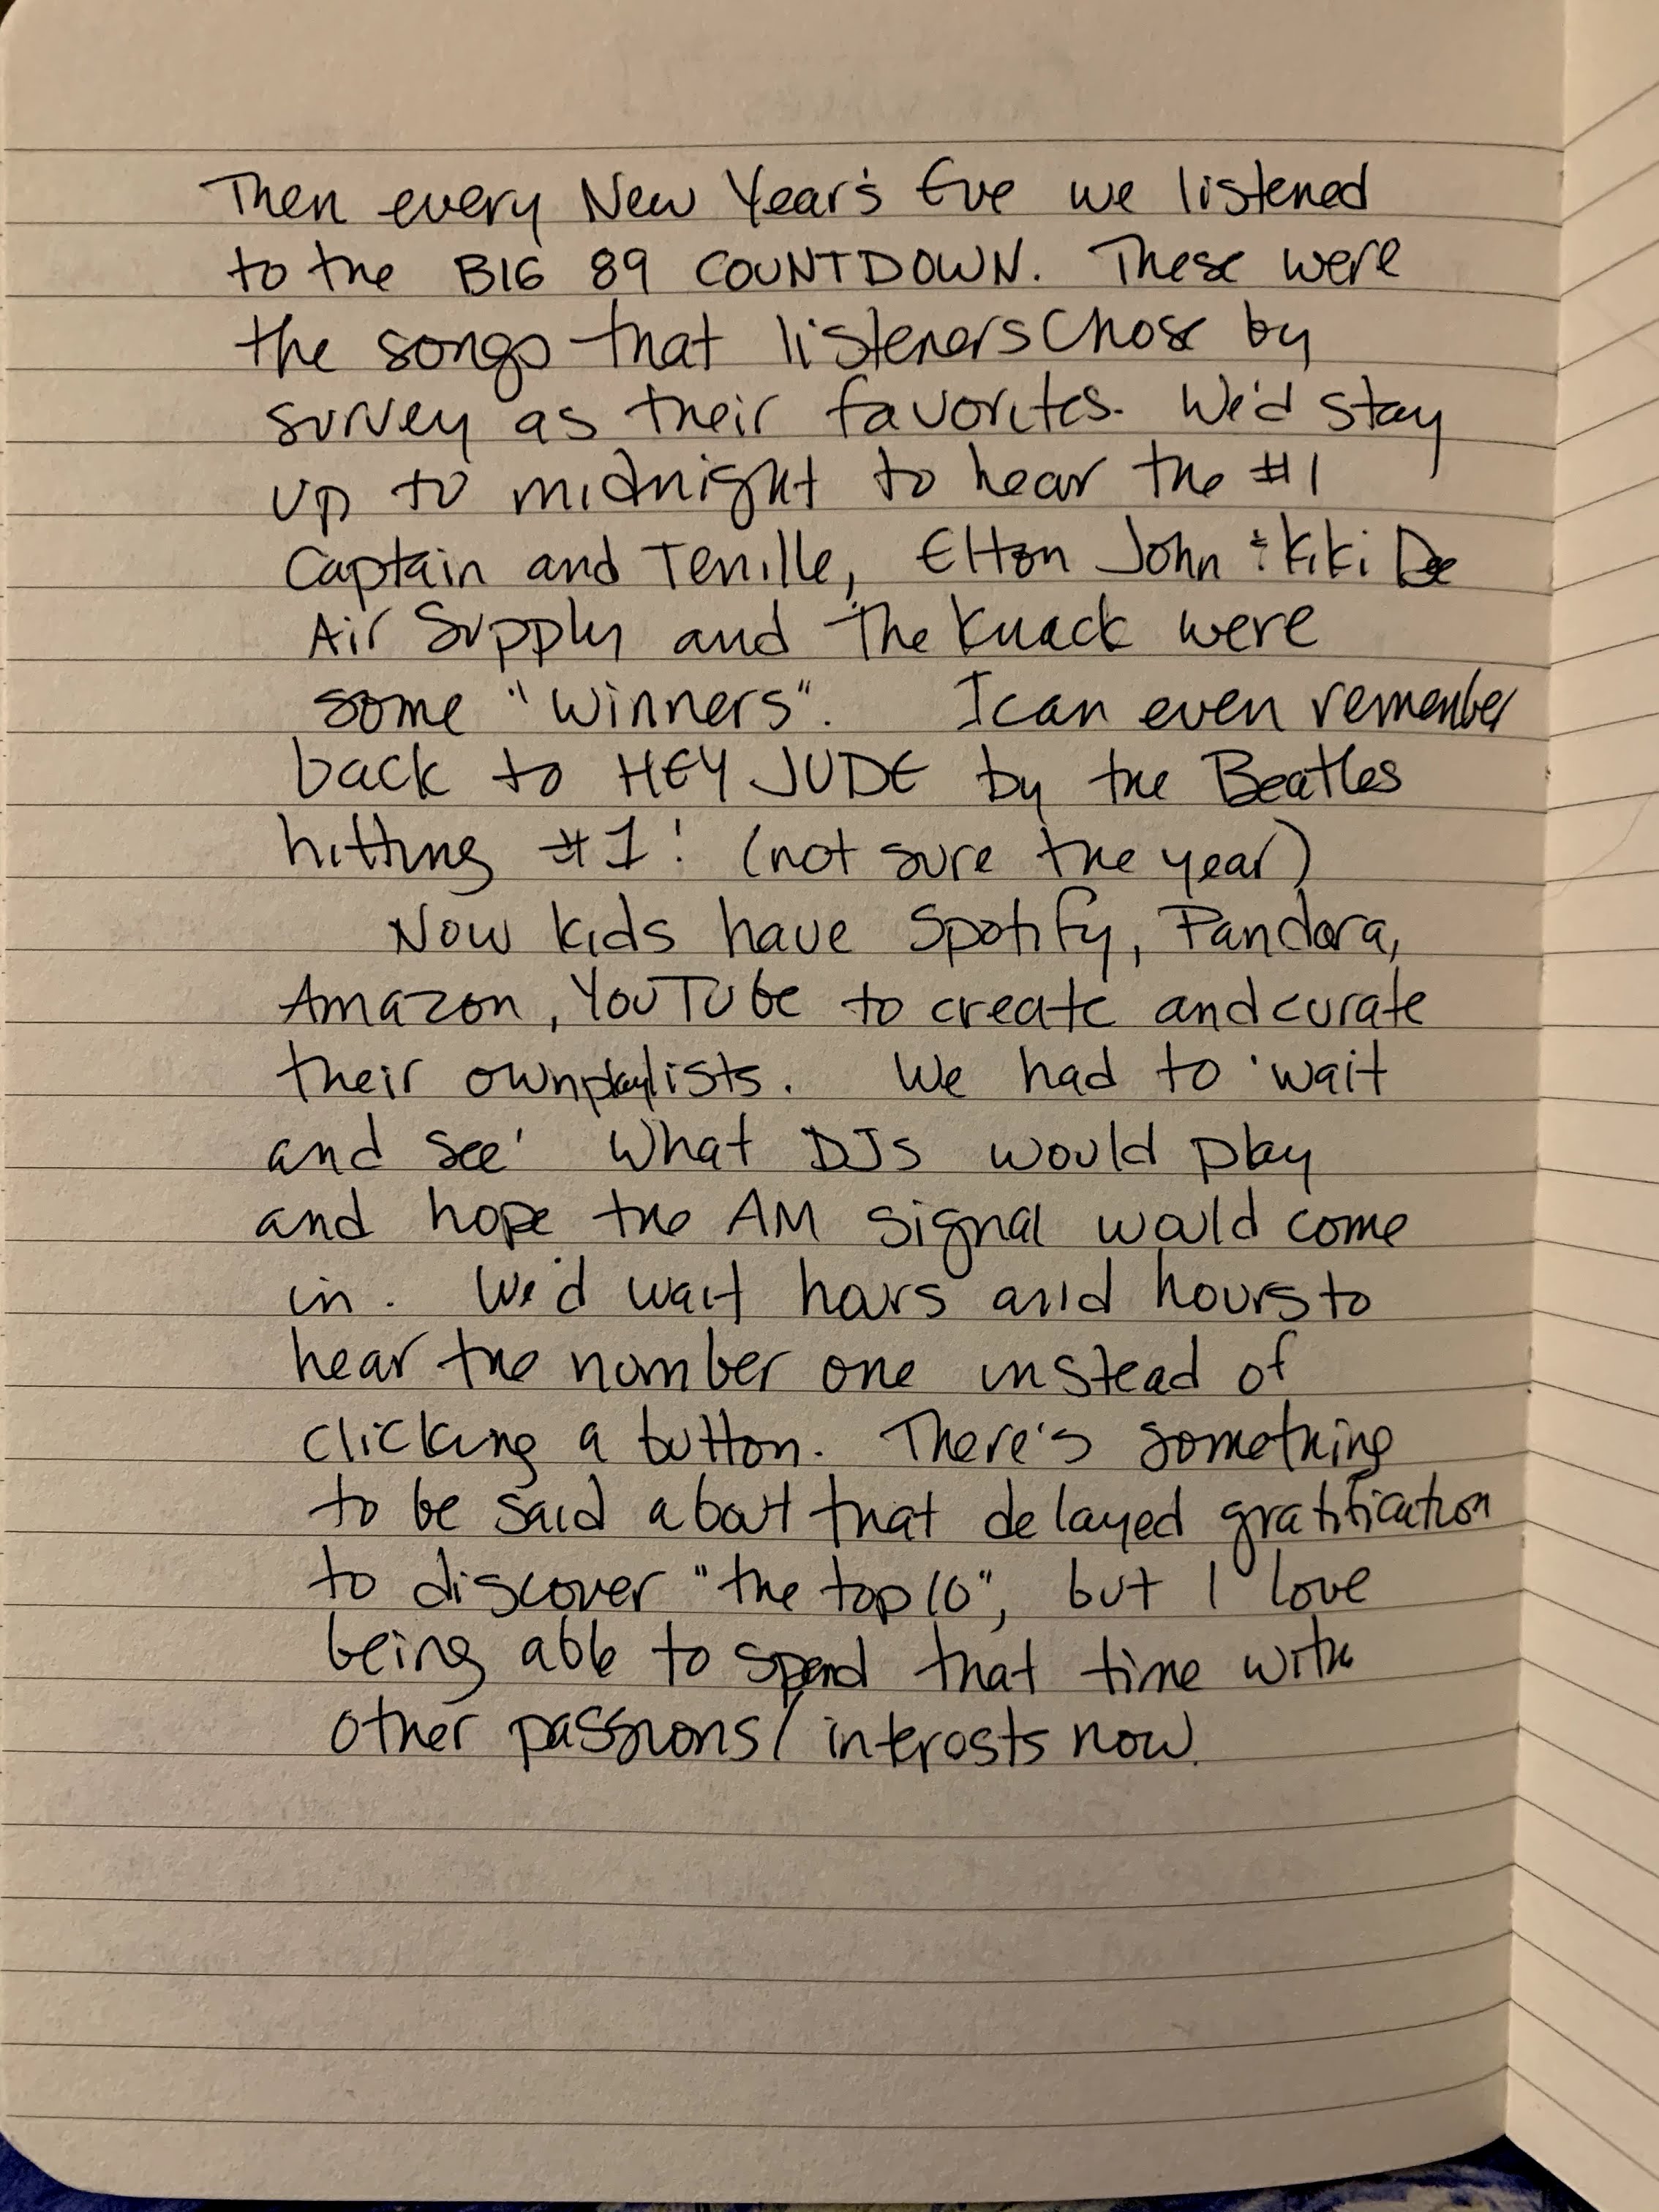 Then every New Year's Eve we listened
to the BIG 89 COUNTDOWN. These were
the songs that listeners chose by
survey as their favorites. We'd stay
up to midnight to hear the #1
Captain and Tenille, Elton John & Kiki Dee
Air Supply and The Knack were
some "winners". I can even remember
back to HEY JUDE by the Beatles
hitting #1! (not sure the year)
Now kids have Spotify, Pandora,
Amazon, YouTube to create and curate
their own playlists. We had to 'wait
and see' what DJs would play
and hope the AM signal would come
in. We'd wait hours and hours to
hear the number one instead of
clicking a button. There's something
to be said about that delayed gratification
to discover "the top 10", but I love
being able to spend that time with
other passions/interests now.